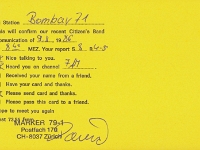 Station Bombay 71
is will confirm our recent Citizen's Band
mmunication of 9.8.
MEZ. Your report S
Nice talking to you.
Heard you on channel
Received your name from a friend.
Have your card and thanks.
Please send card and thanks.
Please pass this card to a friend.
to meet you again
MARKER 79-1
Postfach 176
CH-8037 Zürich